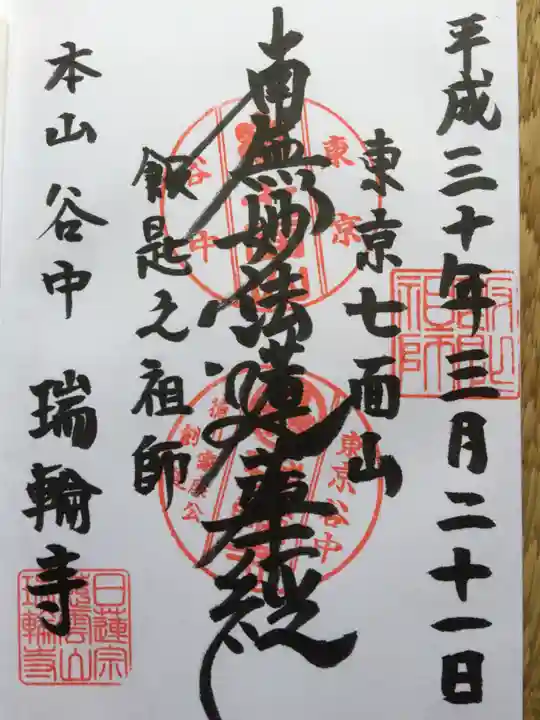 平成三十年三月二十一日
東京七面山
南無妙法蓮華経
飯匙之祖師
本山 谷中 瑞輪寺
東京
谷中
東京谷中
日蓮宗
慈雲山
瑞輪寺